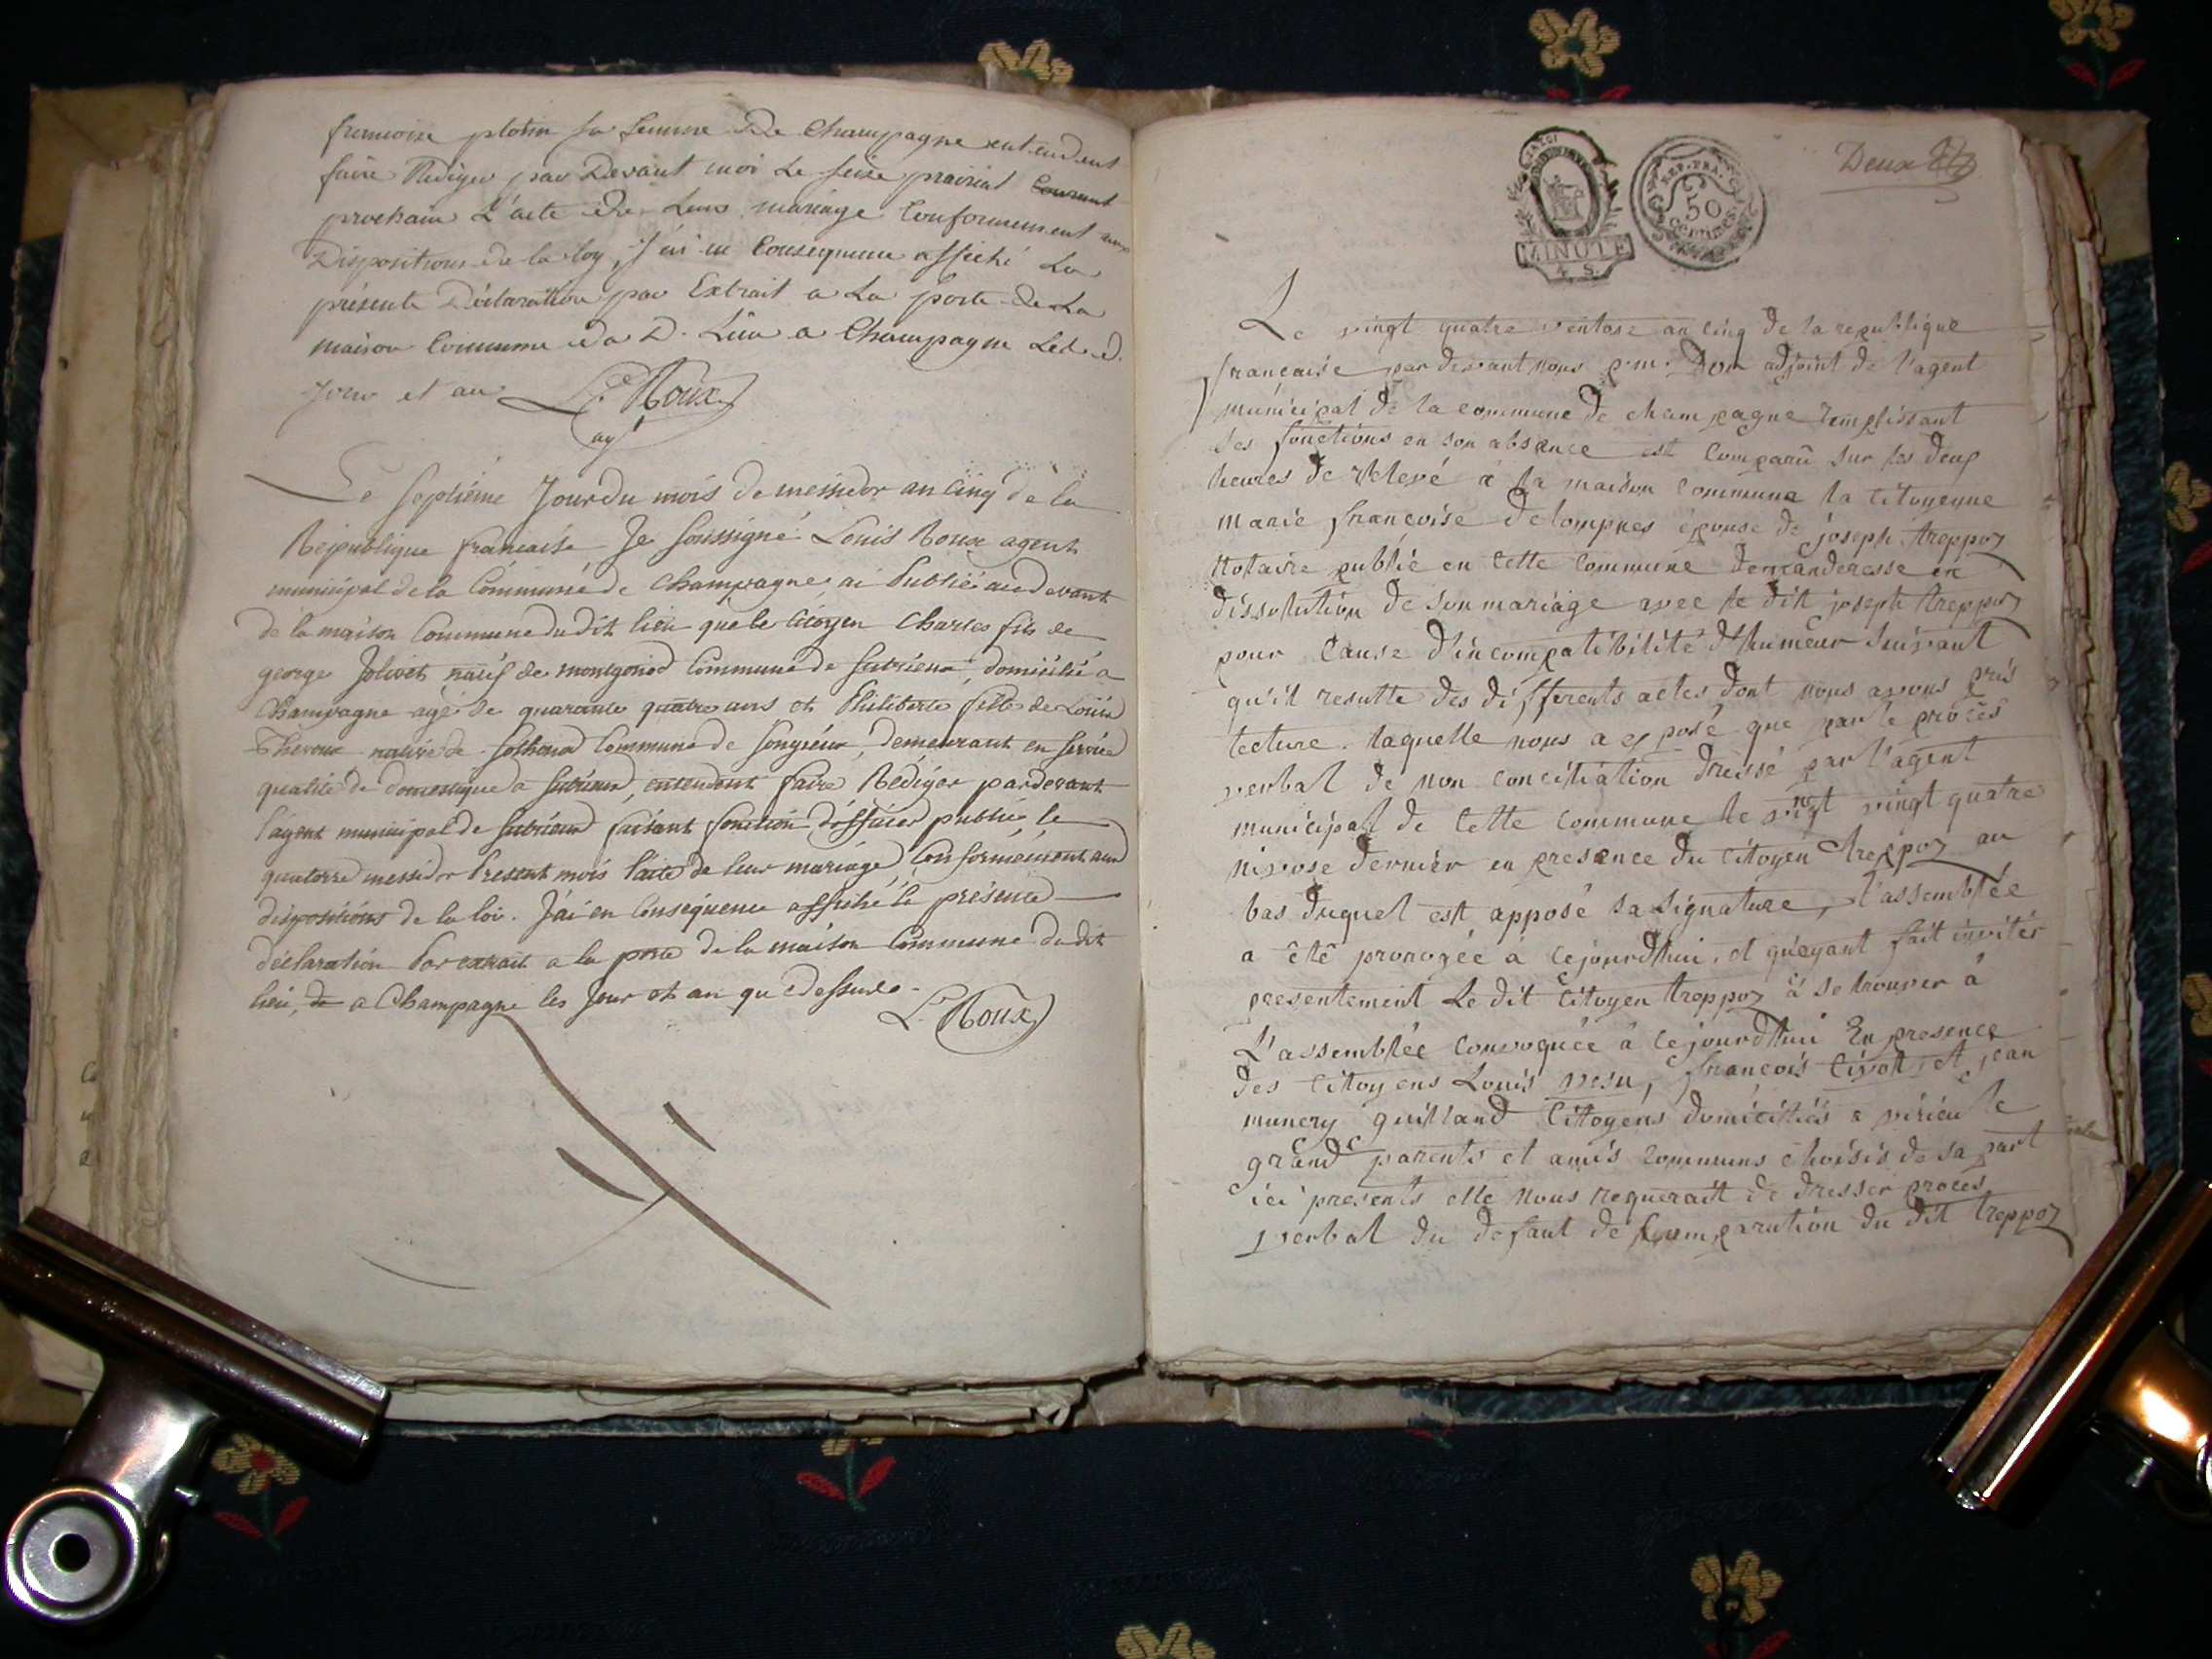 francoise plotin sa femme De Champagne entendent
faire Rediger par Devant moi Le seize prairial Courant
prochain L'acte de Leur mariage Conformement aux
Dispositions de la loy, J'ai en Consequence affiché La
présente Déclaration par Extrait a La porte de La
maison Commune du D. Lieu a Champagne Led. d.
Jour et an L.s Roux
ag.t
Le septiéme Jour du mois de messidor an Cinq de la
République française Je soussigné Louis Roux agent
municipal de la Commune de Champagne ai Publié au devant
de la maison Commune du dit lieu que le Citoyen Charles fils de
george Jolivet natif de montgonod Commune de sutrieux, domicilié a
Champagne agé de quarante quatre ans et Philiberte fille de Louis
Theroux native de sothonod Commune de songieux, demeurant en service
qualité de domestique a sutrieux, entendent faire Rédiger pardevant
l'agent municipal de sutrieux faisant fonction d'officier public le
quatorze messidor Present mois l'acte de leur mariage, Conformément aux
dispositions de la loi. J'ai en Conséquence affiché la présente
déclaration Par extrait a la porte de la maison Commune du dit
lieu, de a Champagne les Jour et an que dessus.
L.s Roux
MINUTE
4 S.
REP. FRA.
50
Centimes
Deux
Le vingt quatre ventose an cinq de la republique
francaise par devant nous p.m. Don adjoint de l'agent
municipal de la commune de champagne remplissant
ses fonctions en son absence est Comparû sur les deux
heures de relevé à la maison commune la Citoyenne
marie francoise delompnes épouse de joseph treppoz
Notaire public en Cette Commune demanderesse en
dissolution de son mariage avec le dit joseph treppoz
pour Cause d'incompatibilité d'humeur suivant
qu'il resulte des differents actes dont nous avons pris
lecture. laquelle nous a exposé que par le procès
verbal de non conciliation dressé par l'agent
municipal de Cette Commune le vingt quatre
nivose dernier en presence du Citoyen treppoz au
bas duquel est apposé sa signature, l'assemblée
a êté prorogée à Cejourd'hui, et qu'ayant fait inviter
presentement Le dit Citoyen treppoz à se trouver à
L'assemblée convoquée à Cejourd'hui En presence
des Citoyens Louis vesu, francois Civot, et jean
munery guilland Citoyens domiciliés a virieu le
grand parents et amis Communs choisis de sa part
ici presents elle nous requerait de dresser procès
verbal du defaut de Comparution du dit treppoz